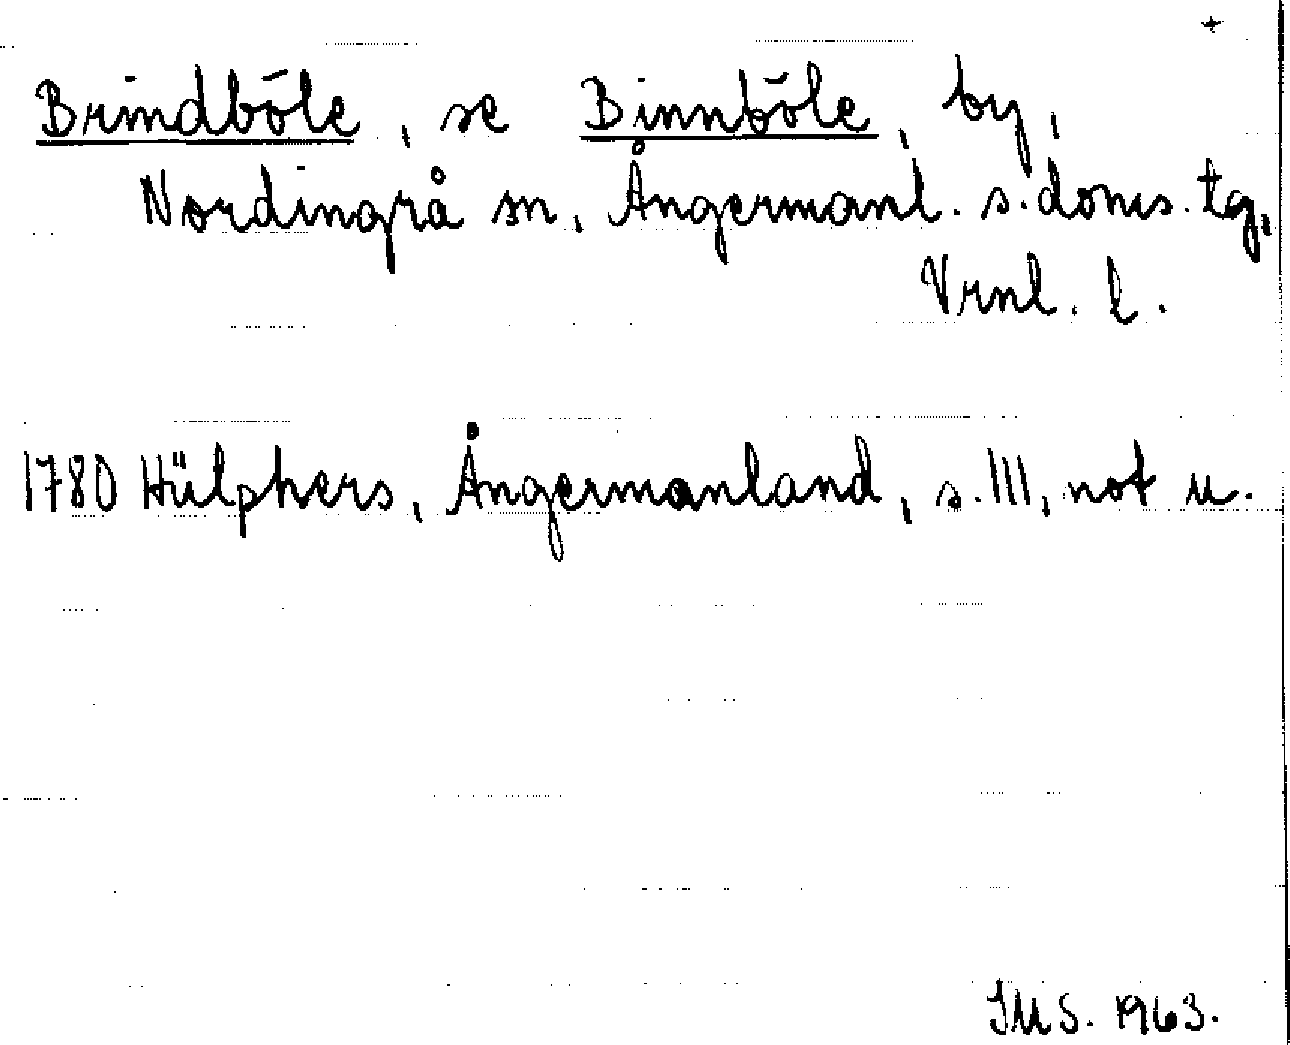 +
Brindböle, se Binnböle, by,
Nordingrå sn, Ångermanl. s. doms. tg,
Vrnl. l.
1780 Hülphers, Ångermanland, s. 111, not u.
IMS. 1963.